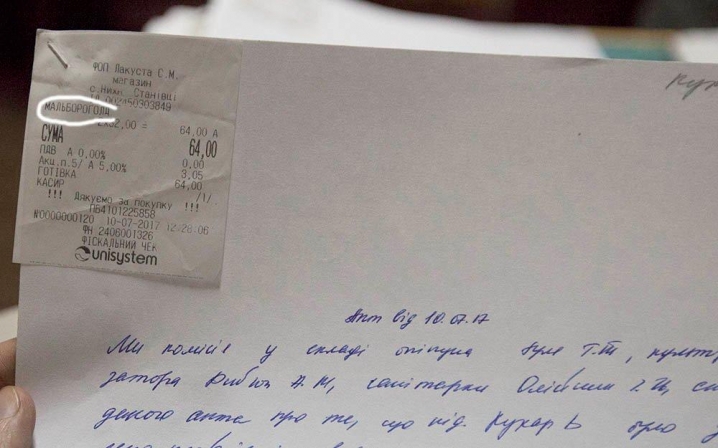 ФОП Пакуста С.М.
магазин
с.Нижн. Станівці
ІД 002150303849
МАЛЬБОРОГОЛД
2х32,00 = 64,00 А
СУМА 64,00
ПДВ А 0,00% 0.00
Акц.п.5/ А 5,00% 3,05
ГОТІВКА 64,00
КАСИР /1/
!!! Дякуємо за покупку !!!
ПБ4101225858
№0000000120 10-07-2017 12:28:06
ФН 2406001326
ФІСКАЛЬНИЙ ЧЕК
unisystem
Акт від 10.07.17
Ми комісія у складі опікуна Т.Т, культ
затора А.М, санітарки
даного акта про те, що під. Кухар В було